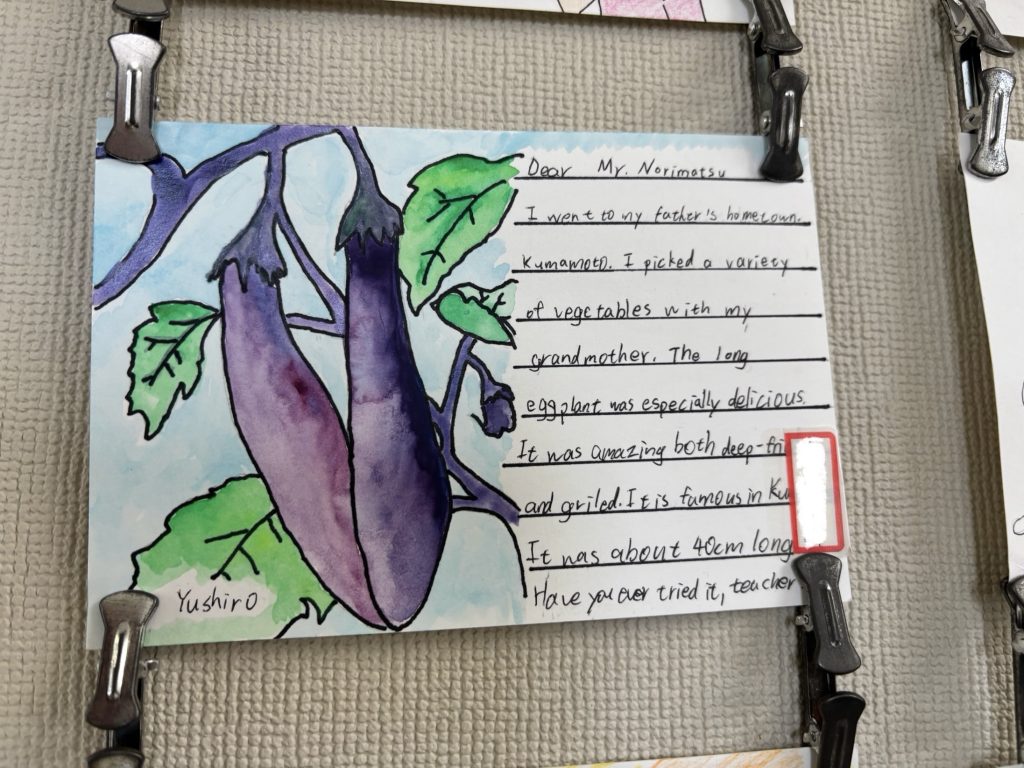 Dear Mr. Norimatsu
I went to my father's hometown.
Kumamoto. I picked a variety
of vegetables with my
grandmother. The long
eggplant was especially delicious.
It was amazing both
and griled. It is famous in
It was about 40cm long
Have you ever tried it, teacher
Yushiro